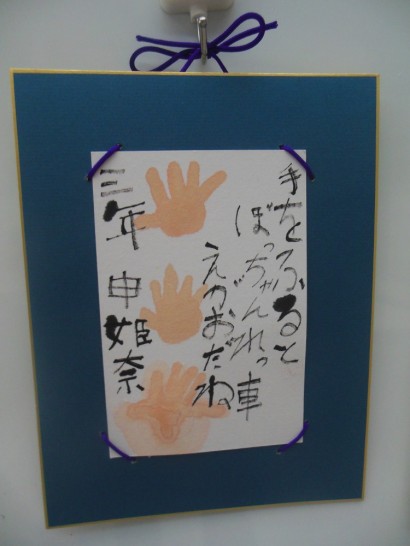 手をふると
ぼっちゃんれっ車
えがおだね
三年 申姫奈